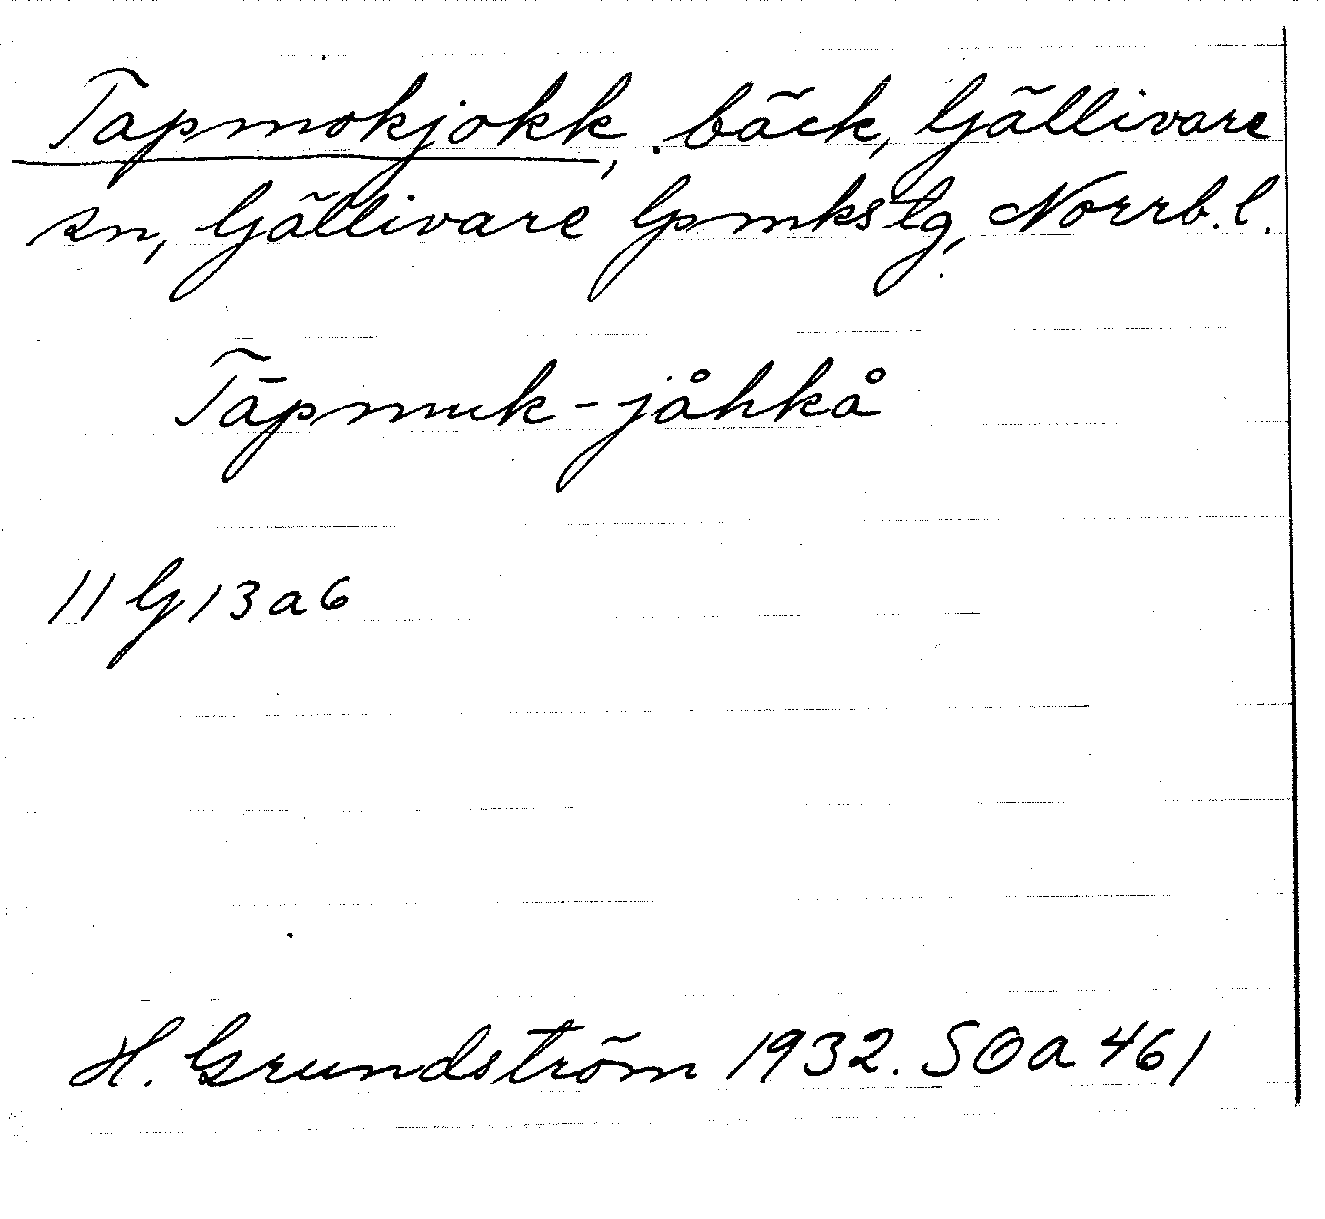 Tapmokjokk, bäck, Gällivare
sn, Gällivare lpmkstg, Norrb. l.
Tāpmuk-jåhkå
11 G 13 a 6
H. Grundström 1932. SOa 461